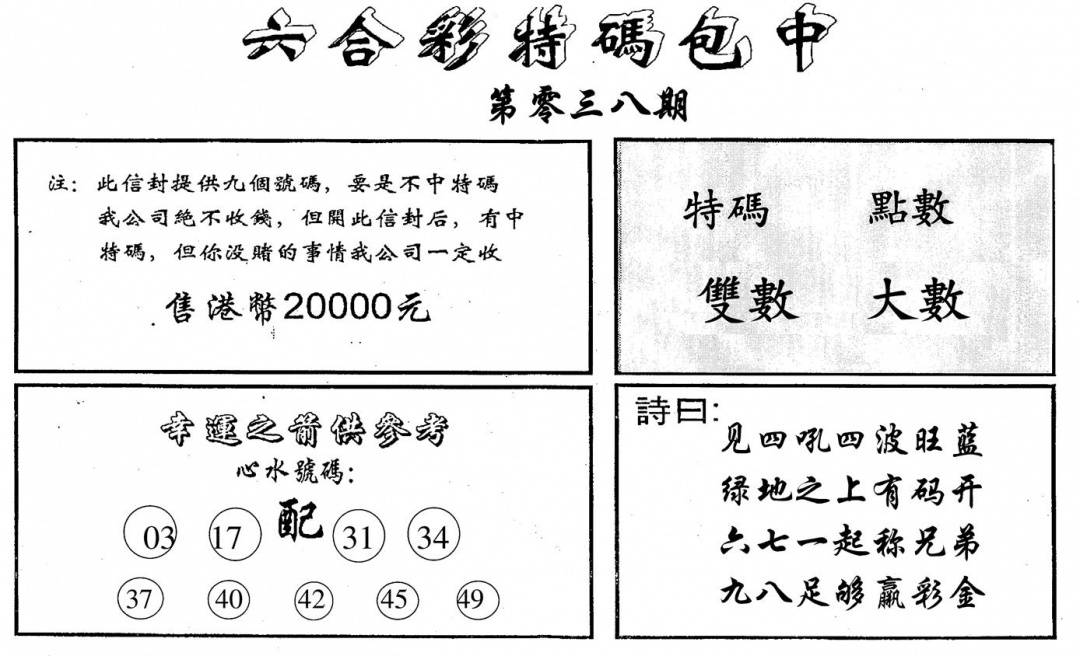 六合彩特碼包中
第零三八期
注：此信封提供九個號碼，要是不中特碼
我公司絕不收錢，但開此信封后，有中
特碼，但你没賭的事情我公司一定收
售港幣20000元
特碼 點數
雙數 大數
幸運之箭供參考
心水號碼：
03 17 配 31 34
37 40 42 45 49
詩曰：
见四吼四波旺蓝
绿地之上有码开
六七一起称兄弟
九八足够赢彩金